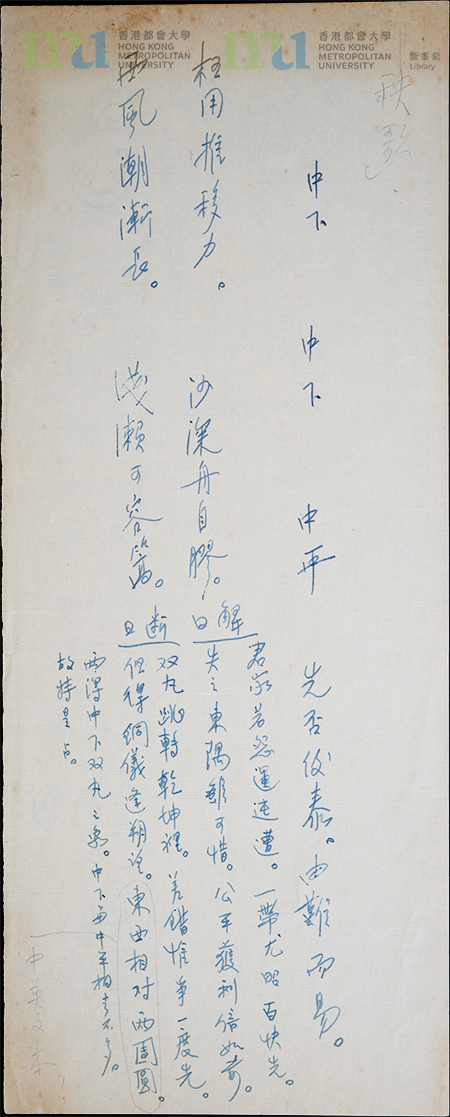 香港都會大學
HONG KONG
METROPOLITAN
UNIVERSITY
香港都會大學
HONG KONG
METROPOLITAN
UNIVERSITY
圖書館
Library
秧歌
中下 中下 中平 先否後泰。由難而易。
枉用推移力。沙深舟自膠。
西風潮漸長。淺瀨可容篙。
解曰
君家若怨運迍邅。一帶尤昭百快先。
失之東隅雖可惜。公平獲利倍如前。
断曰
双丸跳轉乾坤裡。差錯惟爭一度先。
但得銅儀逢朔望。東西相对兩團圓。
兩得中下双丸之象。中下与中平相差不多。
故特呈占。